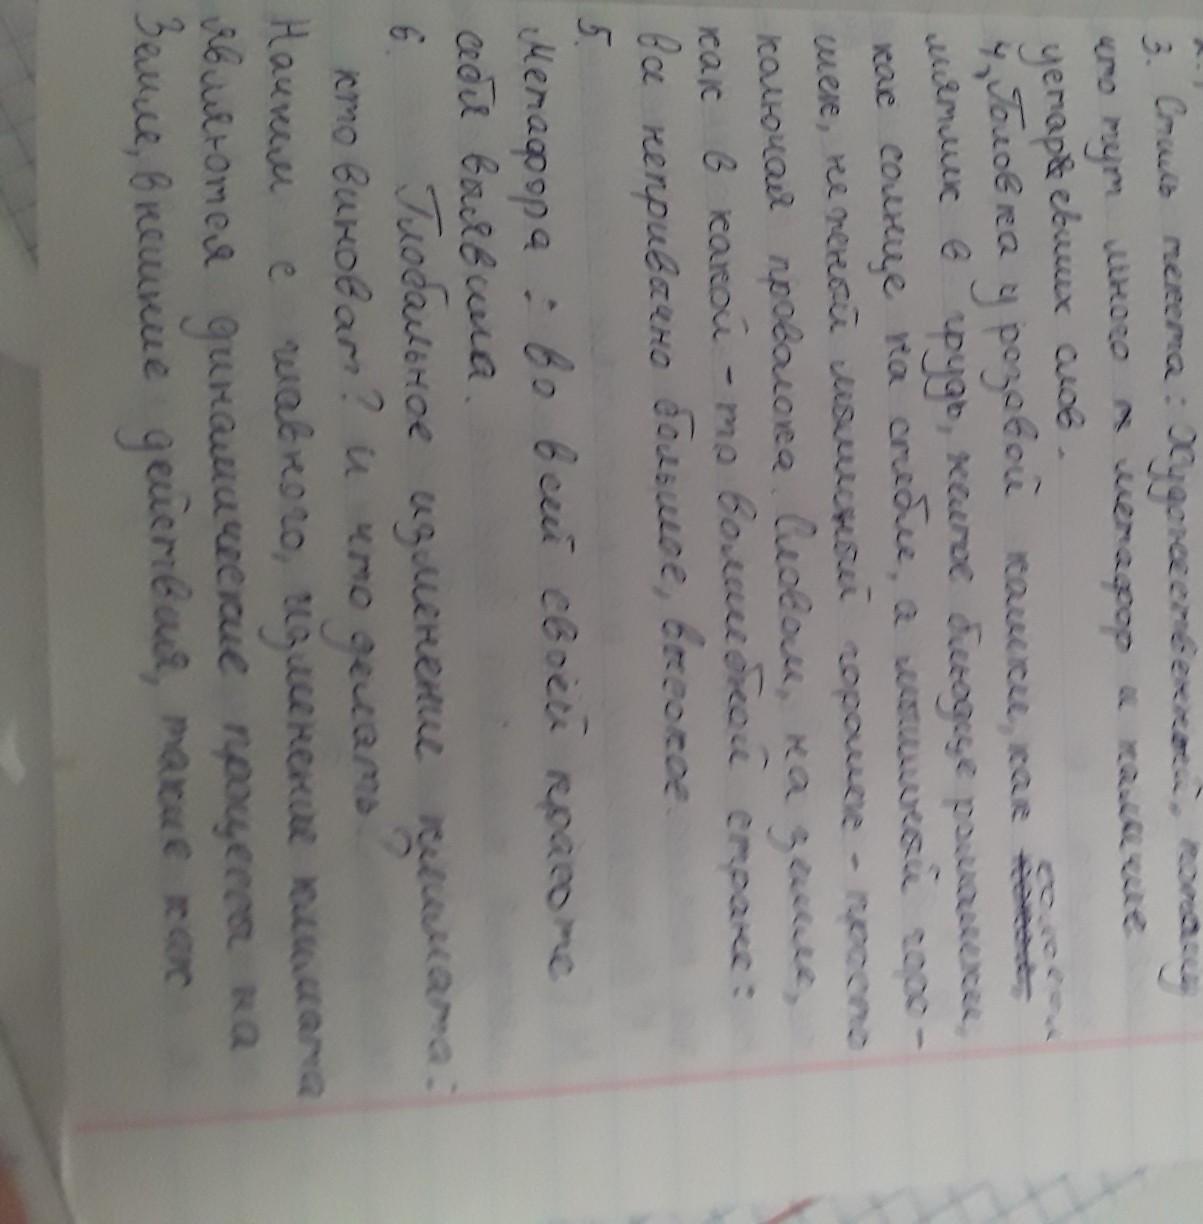 3. Стиль текста: Художественный, потому
что тут много метафор и наличие
устаревших слов.
4. Головка у розовой кашки, как
мятлик в грудь, желтое блюдце ромашки,
как солнце на стебле, а мышиной горо-
шек, нежный мышиный горошек - просто
колючая проволока. Словом, на земле,
как в какой-то волшебной стране:
вся непривычно большое, высокое.
5.
Метафора: во всей своей красоте
себя выявила.
6. Глобальное изменение климата:
кто виноват? и что делать?
Начнем с главного, изменение климата
являются динамические процесса на
Земле, внешние действия, такие как